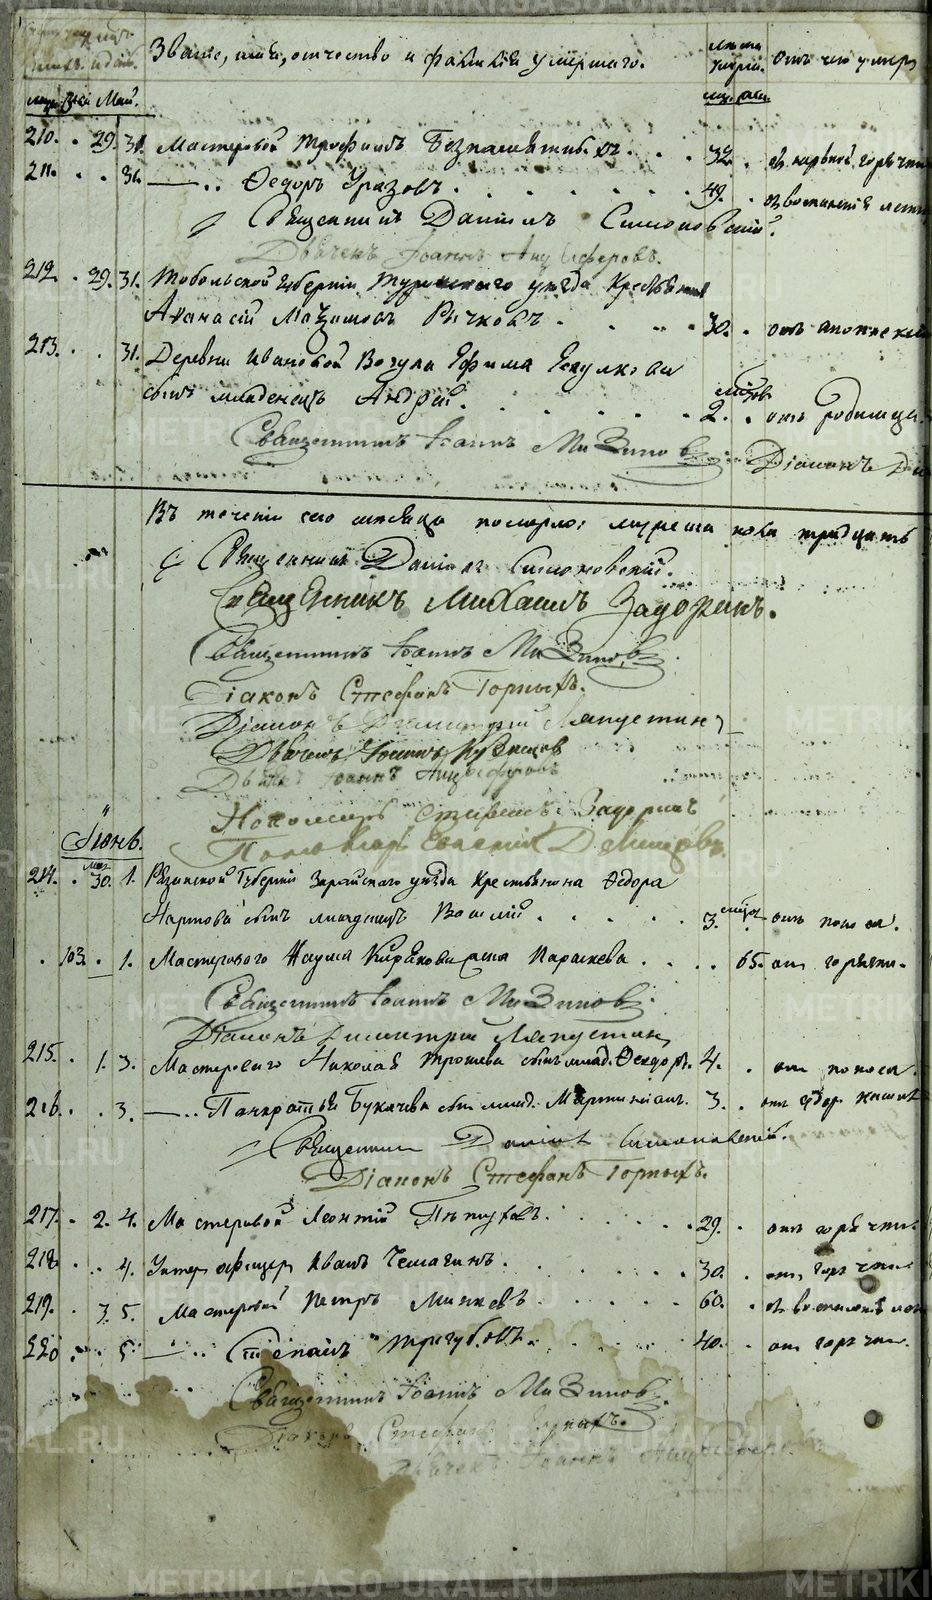 Званіе, имя, отчество и фамилія умершаго.
Лѣта умерш.
Отъ чего умеръ
муж. жен. Май.
муж. жен.
210. 29. 31. Мастеровой Трофимъ 32. отъ нервной горячки
211. 31. —„ Ѳедоръ Уразовъ 49. отъ воспаленія легк
Священникъ Даніилъ Симоновскій.
Дьячекъ Іоаннъ Анциферовъ.
212. 29. 31. Тобольской Губерніи Туринскаго уѣзда Крестьянинъ
Аѳанасій Максимовъ Рычковъ 30. отъ апоплексіи
213. 31. Деревни Ивановой Вогула Ефима
сынъ младенецъ Андрей. 2. мѣсяц отъ родимца
Священникъ Іоаннъ Мизиновъ
Діаконъ
Въ теченіи сего мѣсяца померло: мужеска пола тридцать
Священникъ Даніилъ Симоновскій.
Священникъ Михаилъ Задоринъ.
Священникъ Іоаннъ Мизиновъ
Діаконъ Стефанъ Горныхъ.
Діаконъ Димитрій Ляпустинъ
Дьячекъ Іоаннъ Кузнецовъ
Дьячекъ Іоаннъ Анциферовъ
Пономарь Стефанъ Задоринъ
Пономарь Евгеній
Іюнь.
214. мая 30. 1. Рязанской Губерніи Зарайскаго уѣзда Крестьянина Ѳедора
Карпова сынъ младенецъ Василій 3. мѣсяц. отъ поноса.
103. 1. Мастероваго Наума Кирьякова жена Параскева 65. отъ горячки.
Священникъ Іоаннъ Мизиновъ.
Діаконъ Димитрій Ляпустинъ
215. 1. 3. Мастероваго Николая Трошева сынъ млад. Ѳеодоръ. 4. отъ поноса.
216. 3. —„ Панкратія Букачева сынъ млад. Мартиніанъ. 3. отъ
Священникъ Даніилъ Симоновскій.
Діаконъ Стефанъ Горныхъ.
217. 2. 4. Мастеровой Леонтій 29. отъ горячки.
218. 4. Унтер офицер Иванъ Чемагинъ. 30. отъ горячки
219. 3. 5. Мастеровой Петръ 60. отъ воспаленія
220. 5. —„ Степанъ Тригубовъ. 40. отъ горячки.
Священникъ Іоаннъ Мизиновъ.
Діаконъ Стефанъ Горныхъ.
Дьячекъ Іоаннъ Анциферовъ
METRIKI.GASO-URAL.RU